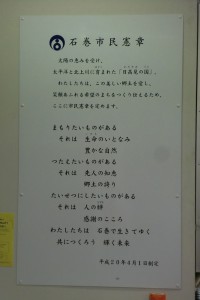 石巻市民憲章
太陽の恵みを受け、
太平洋と北上川に育まれた「日高見の国」。
わたしたちは、この美しい郷土を愛し、
笑顔あふれる希望のまちをつくり伝えるため、
ここに市民憲章を定めます。
まもりたいものがある
それは 生命のいとなみ
豊かな自然
つたえたいものがある
それは 先人の知恵
郷土の誇り
たいせつにしたいものがある
それは 人の絆
感謝のこころ
わたしたちは 石巻で生きてゆく
共につくろう 輝く未来